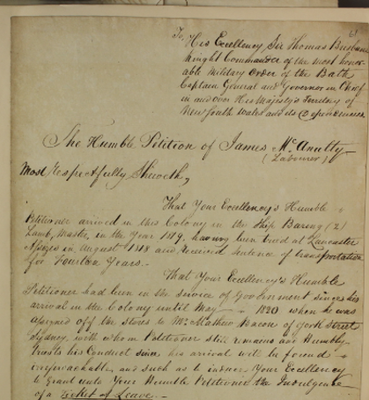 To His Excellency Sir Thomas Brisbane
Knight Commander of the most honor-
able Military Order of the Bath
Captain General and Governor in Chief
in and over His Majesty's Territory of
New South Wales and its Dependencies
The Humble Petition of James McAnulty
(Labourer)
Most Respectfully Sheweth,
That Your Excellency's Humble
Petitioner arrived in this Colony in the Ship Baring (2)
Lamb, Master, in the Year 1819, having been tried at Lancaster
Assizes in August 1818 and received sentence of transportation
for fourteen Years.
That Your Excellency's Humble
Petitioner had been in the service of Government since his
arrival in the Colony until May 1820 when he was
assigned off the stores to Mr Mathew Bacon of York Street
Sydney, with whom Petitioner still remains and Humbly
trusts his Conduct since his arrival will be found
and such as to induce Your Excellency
to Grant unto Your Humble Petitioner the Indulgence
of a Ticket of Leave